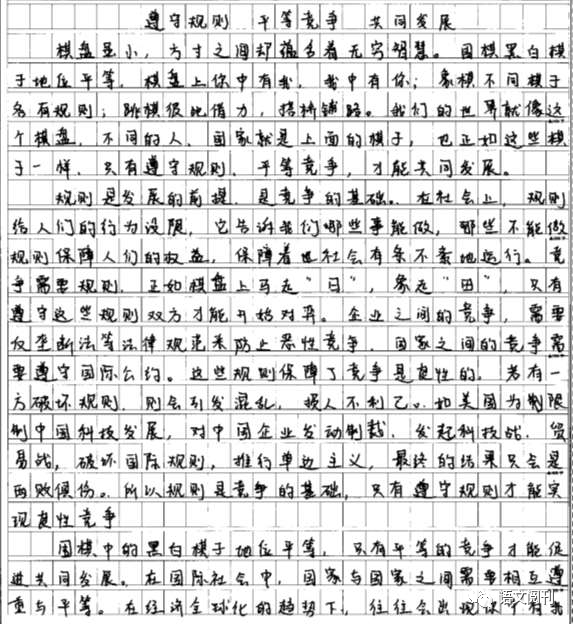 遵守规则 平等竞争 共同发展
棋盘虽小,方寸之间却蕴含着无穷智慧。围棋黑白棋
子地位平等,棋盘上你中有我,我中有你;象棋不同棋子
各有规则;跳棋彼此借力,搭桥铺路。我们的世界就像这
个棋盘,不同的人、国家就是上面的棋子,也正如这些棋
子一样,只有遵守规则,平等竞争,才能共同发展。
规则是发展的前提,是竞争的基础。在社会上,规则
给人们的行为设限,它告诉我们哪些事能做,哪些不能做
规则保障人们的权益,保障着也社会有条不紊地运行。竞
争需要规则,正如棋盘上马走“日”,象走“田”,只有
遵守这些规则双方才能开始对弈。企业之间的竞争,需要
反垄断法等法律规范来防止恶性竞争,国家之间的竞争需
要遵守国际公约。这些规则保障了竞争是良性的,若有一
方破坏规则,则会引发混乱,损人不利己。如美国为制限
制中国科技发展,对中国企业发动制裁,发起科技战,贸
易战,破坏国际规则,推行单边主义,最终的结果只会是
两败俱伤。所以规则是竞争的基础,只有遵守规则才能实
现良性竞争
围棋中的黑白棋子地位平等,只有平等的竞争才能促
进共同发展。在国际社会中,国家与国家之间需要相互遵
重与平等。在经济全球化的趋势下,往往会出现
语文阅刊